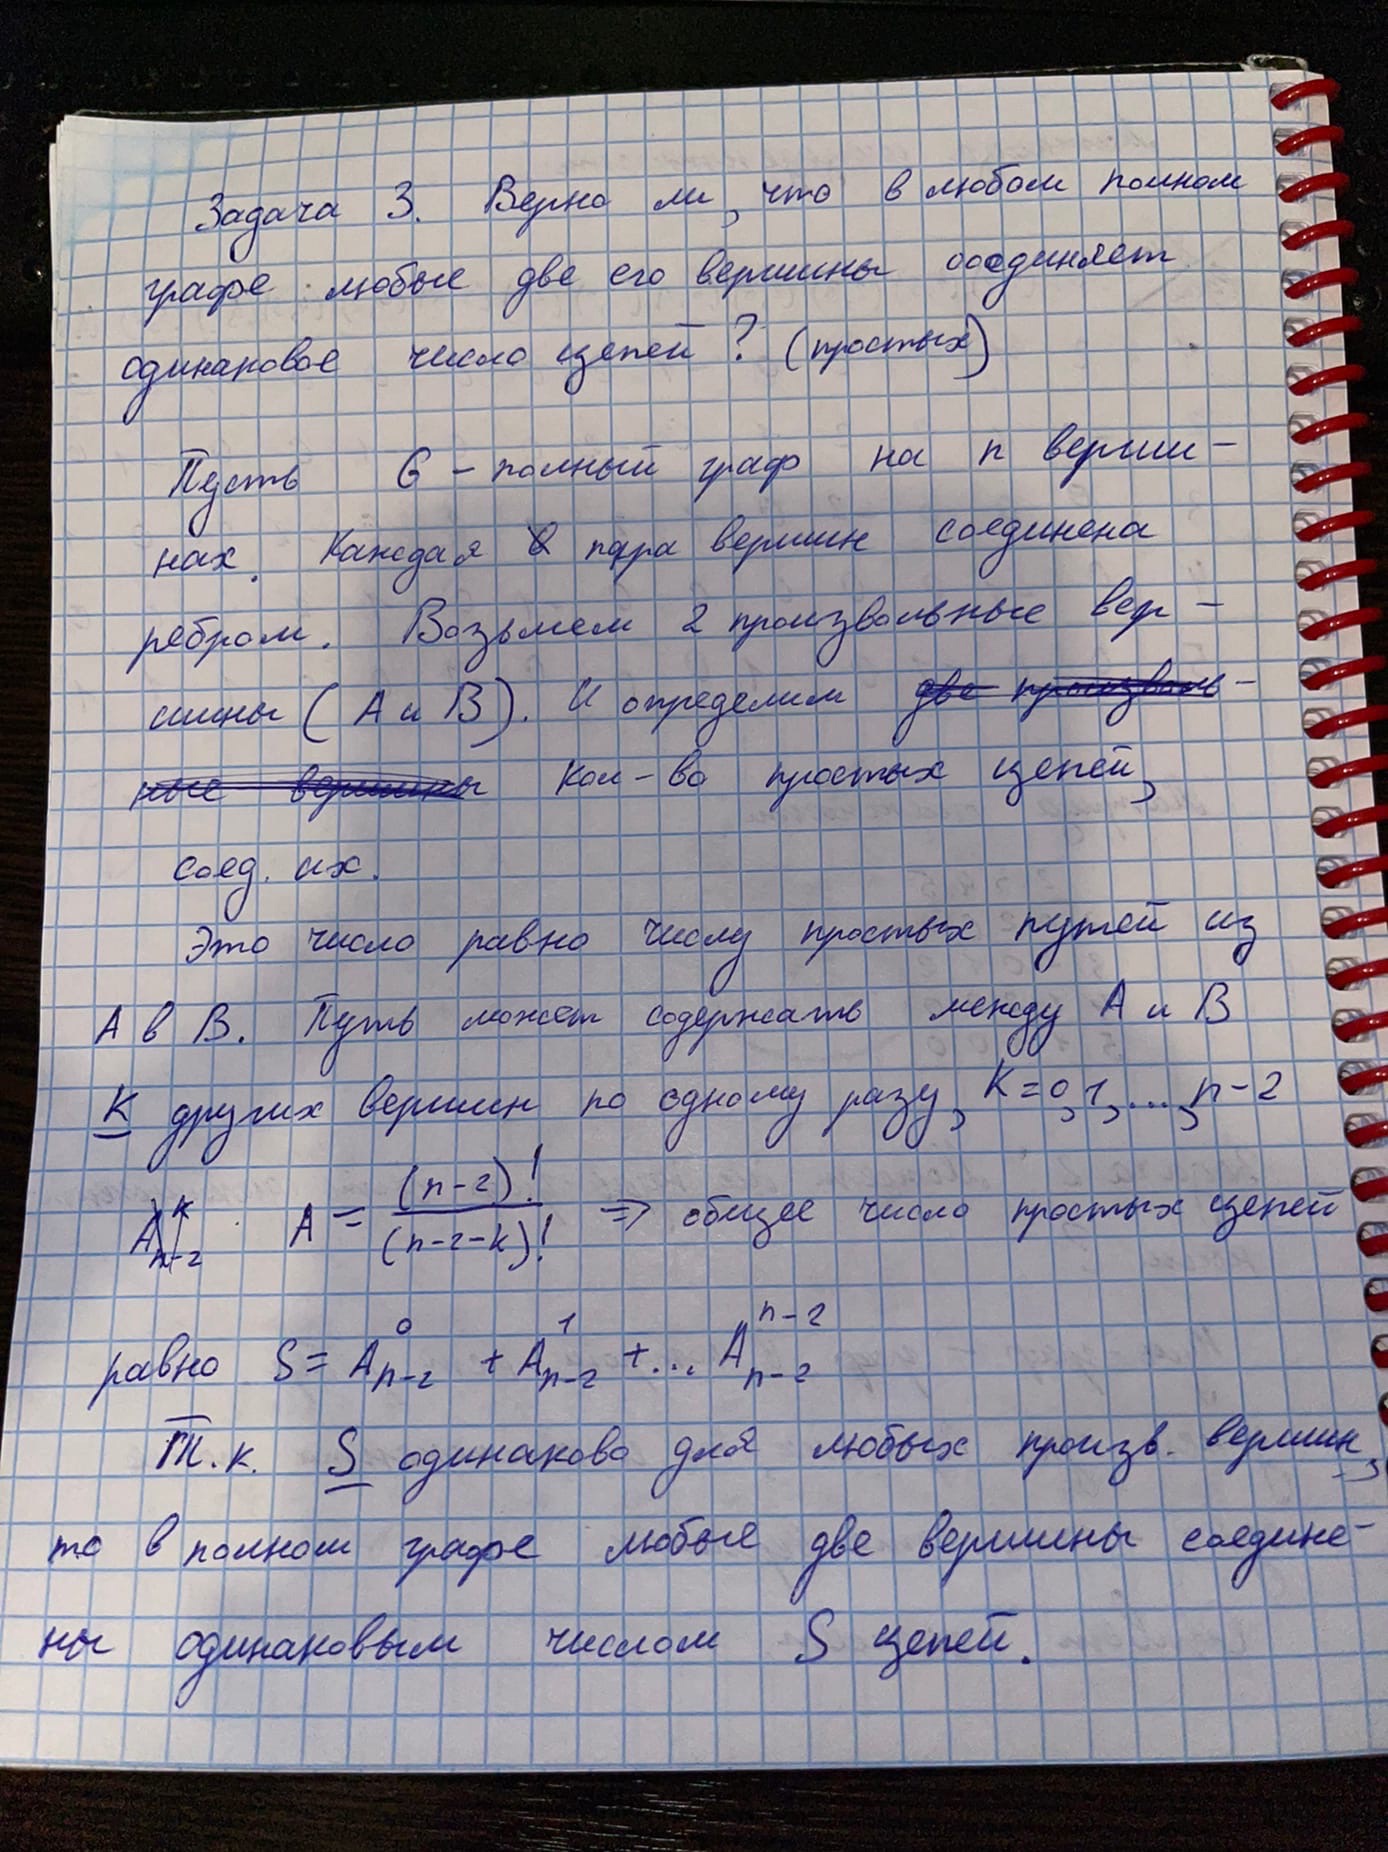 Задача 3. Верно ли, что в любом полном
графе любые две его вершины соединяет
одинаковое число цепей? (простых)
Пусть G - полный граф на n верши-
нах. Каждая пара вершин соединена
ребром. Возьмем 2 произвольные вер-
шины (A и B). И определим две произволь-
ные вершины кол-во простых цепей,
соед. их.
Это число равно числу простых путей из
A в B. Путь может содержать между A и B
K других вершин по одному разу, K=0,1,...,n-2
A^k_{n-2} A = (n-2)!/(n-2-k)! => общее число простых цепей
равно S = A^0_{n-2} + A^1_{n-2} + ... A^{n-2}_{n-2}
Т.к. S одинаково для любых произв. вершин,
то в полном графе любые две вершины соедине-
ны одинаковым числом S цепей.